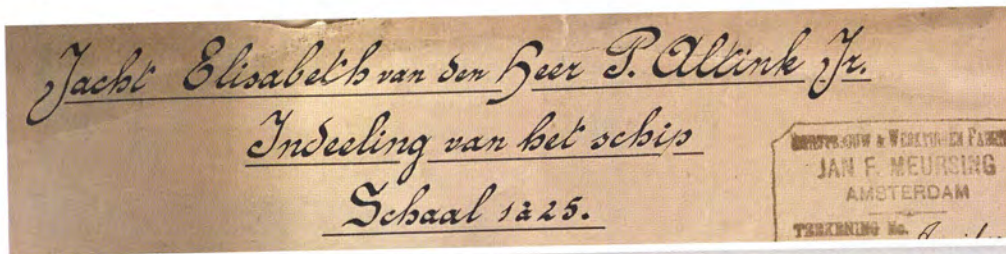 Jacht Elisabeth van den Heer P. Altink Jr.
Indeeling van het schip
Schaal 1 à 25.
JAN F. MEURSING
AMSTERDAM
TEEKENING No.